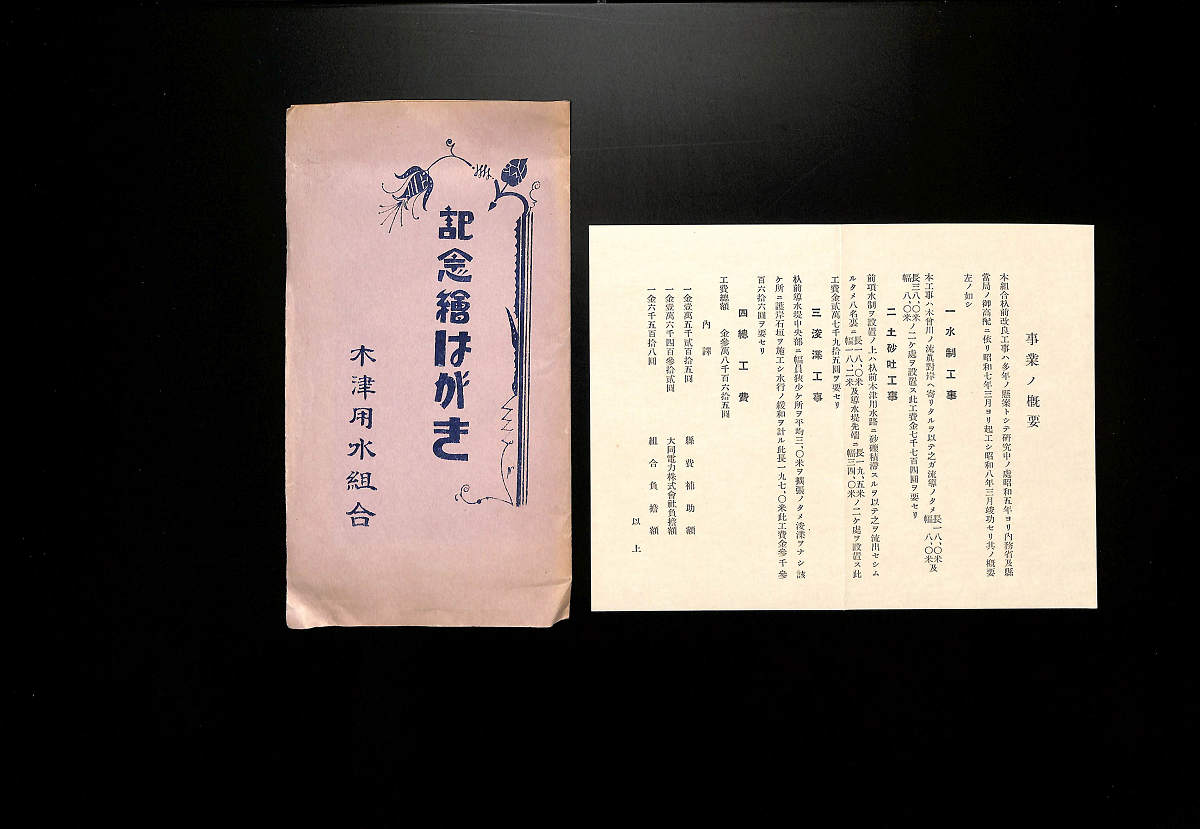 記念繪はがき
木津用水組合
事業ノ概要
本組合杁前改良工事ハ多年ノ懸案トシテ研究中ノ處昭和五年ヨリ內務省及縣
當局ノ御高配ニ依リ昭和七年三月ヨリ起工シ昭和八年三月竣功セリ其ノ概要
左ノ如シ
一 水制工事
本工事ハ木曾川ノ流眞對岸ヘ寄リタルヲ以テ之ガ流導ノタメ長一八、〇米幅八、〇米及
長三八、〇米幅八、〇米ノ二ケ處ヲ設置ス此工費金七千七百四圓ヲ要セリ
二 土砂吐工事
前項水制ヲ設置ノ上ハ杁前木津用水路ニ砂礫積滯スルヲ以テ之ヲ流出セシム
ルタメ八名裏ニ長一八、〇米幅一八、二米及導水堤先端ニ長一九、五米幅三四、〇米ノ二ケ處ヲ設置ス此
工費金貳萬七千九拾五圓ヲ要セリ
三 浚渫工事
杁前導水堤中央部ニ幅員狹少ケ所ヲ平均三、〇米ヲ擴張ノタメ浚渫ヲナシ該
ケ所ニ護岸石垣ヲ施工シ水行ノ緩和ヲ計ル此長一九七、〇米此工費金參千參
百六拾六圓ヲ要セリ
四 總工費
工費總額 金參萬八千百六拾五圓
內譯
一金壹萬五千貳百拾五圓 縣費補助額
一金壹萬六千四百參拾貳圓 大同電力株式會社負擔額
一金六千五百拾八圓 組合負擔額
以上